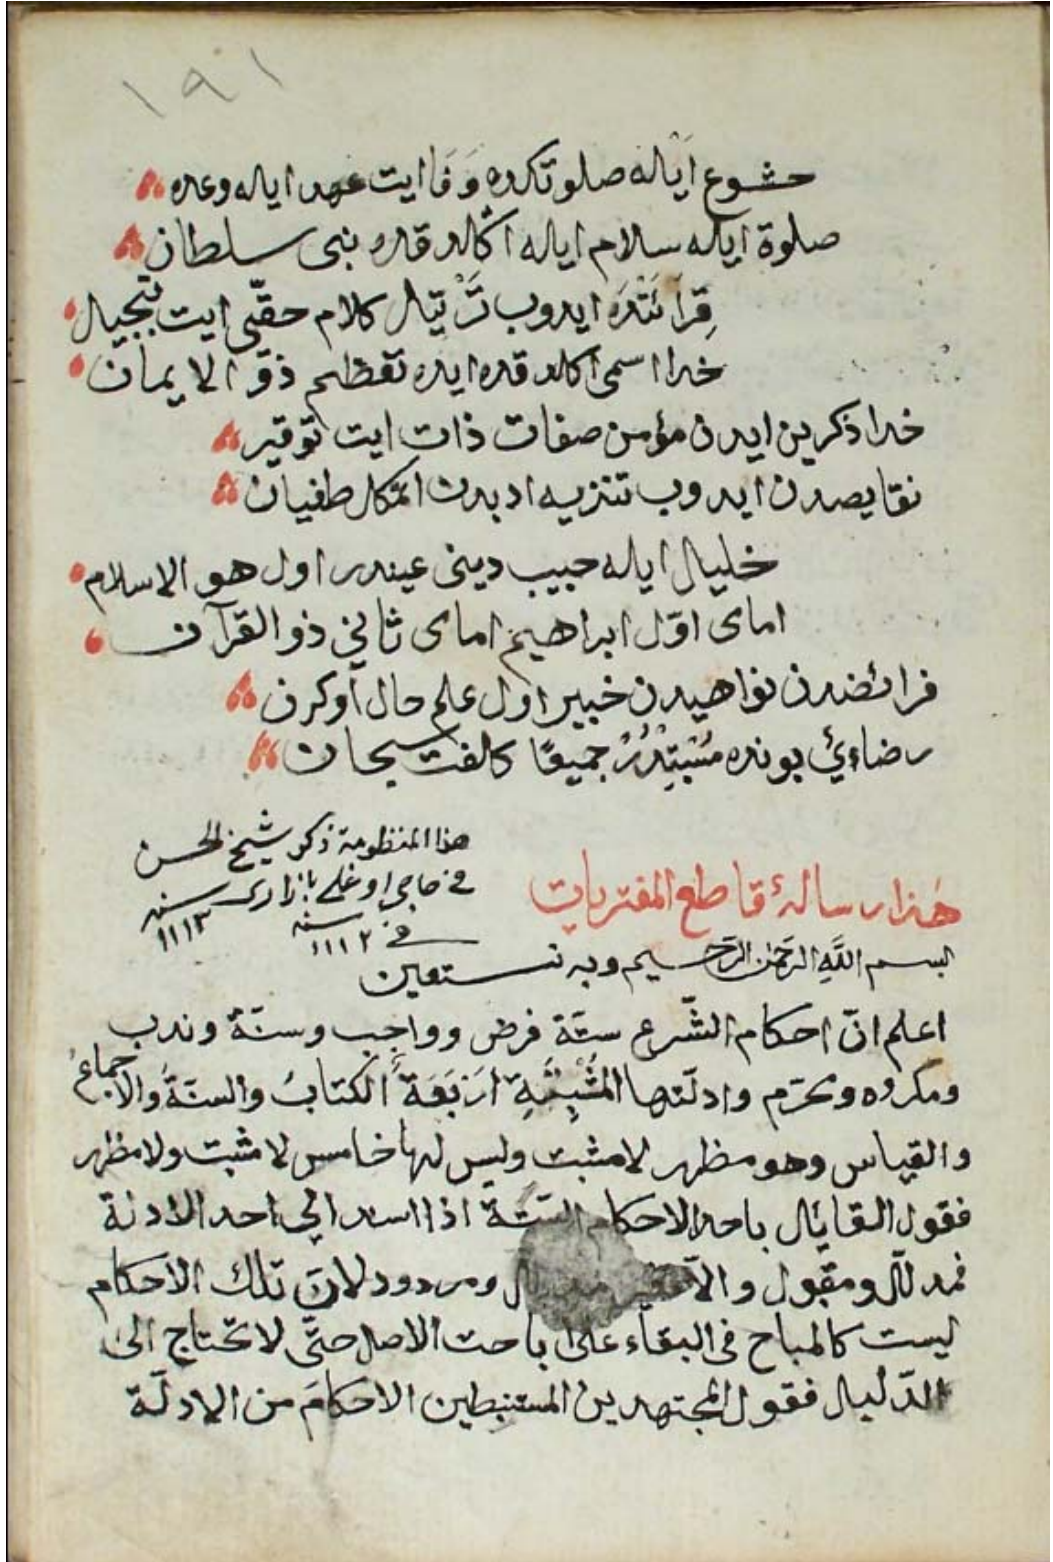 ١٩٠١
خشوع ايله صلوتكده وَفَا ايت عهد ايله وعده
صلوة ايله سلام ايله اكلد قده نبى سلطان
قِرَائَتْدَه ايدوب تَرْتيل كلام حقّى ايت تبجيل
خدا اسمى اكلد قده ايده تعظيم ذو الايمان
خدا ذكرين ايدن مؤمن صفات ذات ايت توقير
نقايصدن ايدوب تنزيه ادبدن طغيان
خليل ايله حبيب دينى عيندر اول هو الاسلام
اماى اوّل ابراهيم اماى ثانى ذو القرآن
فرائضدن نواهيدن خبير اول علم حال اوكرن
رضاءئ بونده جميعًا سبحان
هذا المنظومة ذكر شيخ الحسن
فى حاجى اوغلى بازارى سنه ١١١٣
فى سنه ١١١٢
هٰذا رسالۀ قاطع المفتريات
بسم اللّٰهِ الرَّحمٰن الرَّحيم وبه نستعين
اعلم انّ احكام الشّرع ستّة فرض وواجب وسنّة وندب
ومكروه ومحرّم وادلّتها المُثْبِتَةِ اَرْبَعَةٌ الكتابُ والسنّةُ والاجماعُ
والقياس وهو مظهر لا مثبت وليس لها خامس لا مثبت ولا مظهر
فقول القائل باحد الاحكام الستّة اذا اسند الى احد الادلة
فمدلّل ومقبول والّا فغير مدلل ومردود لانّ تلك الاحكام
ليست كالمباح فى البقاء على اباحت الاصل حتّى لا تحتاج الى
الدّليل فقول المجتهدين المستنبطين الاحكامَ من الادلّة